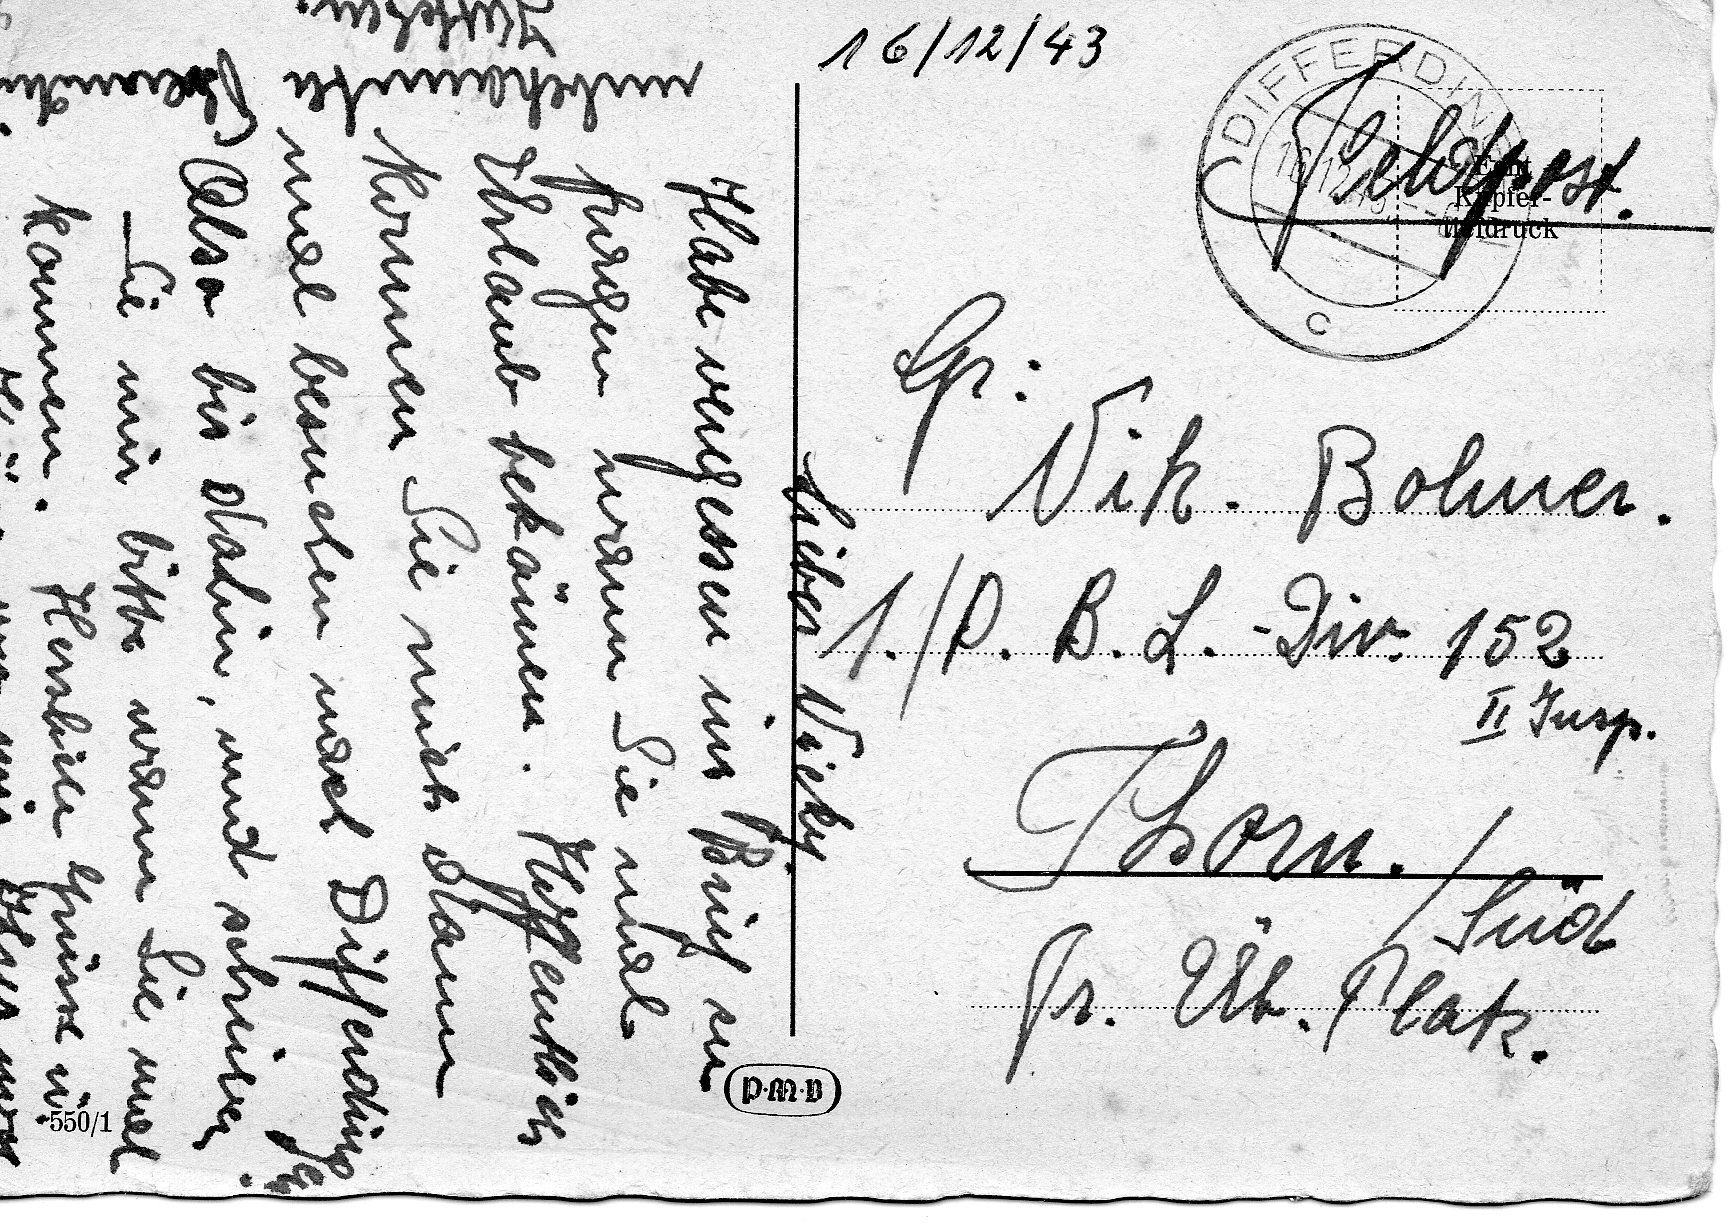 16/12/43
DIFFERDINGEN
16.12.
c
Feldpost.
Echt
Kupfer-
tiefdruck
Gr:
Nik. Bohmer.
1./P. B. L. - Div. 152
II Insp.
Thorn. / Süd
Gr. Üb. Platz.
P·M·B
550/1
Lieber Nicky
Habe vergessen im Brief zu
fragen wann Sie mal
Uhrlaub bekämen. Hoffentlich
kommen Sie mich dann
mal besuchen nach Differdingen.
Also bis dahin, und schreiben
Sie mir bitte wann Sie mal
kommen. Herzliche Grüsse u.
unbekannte